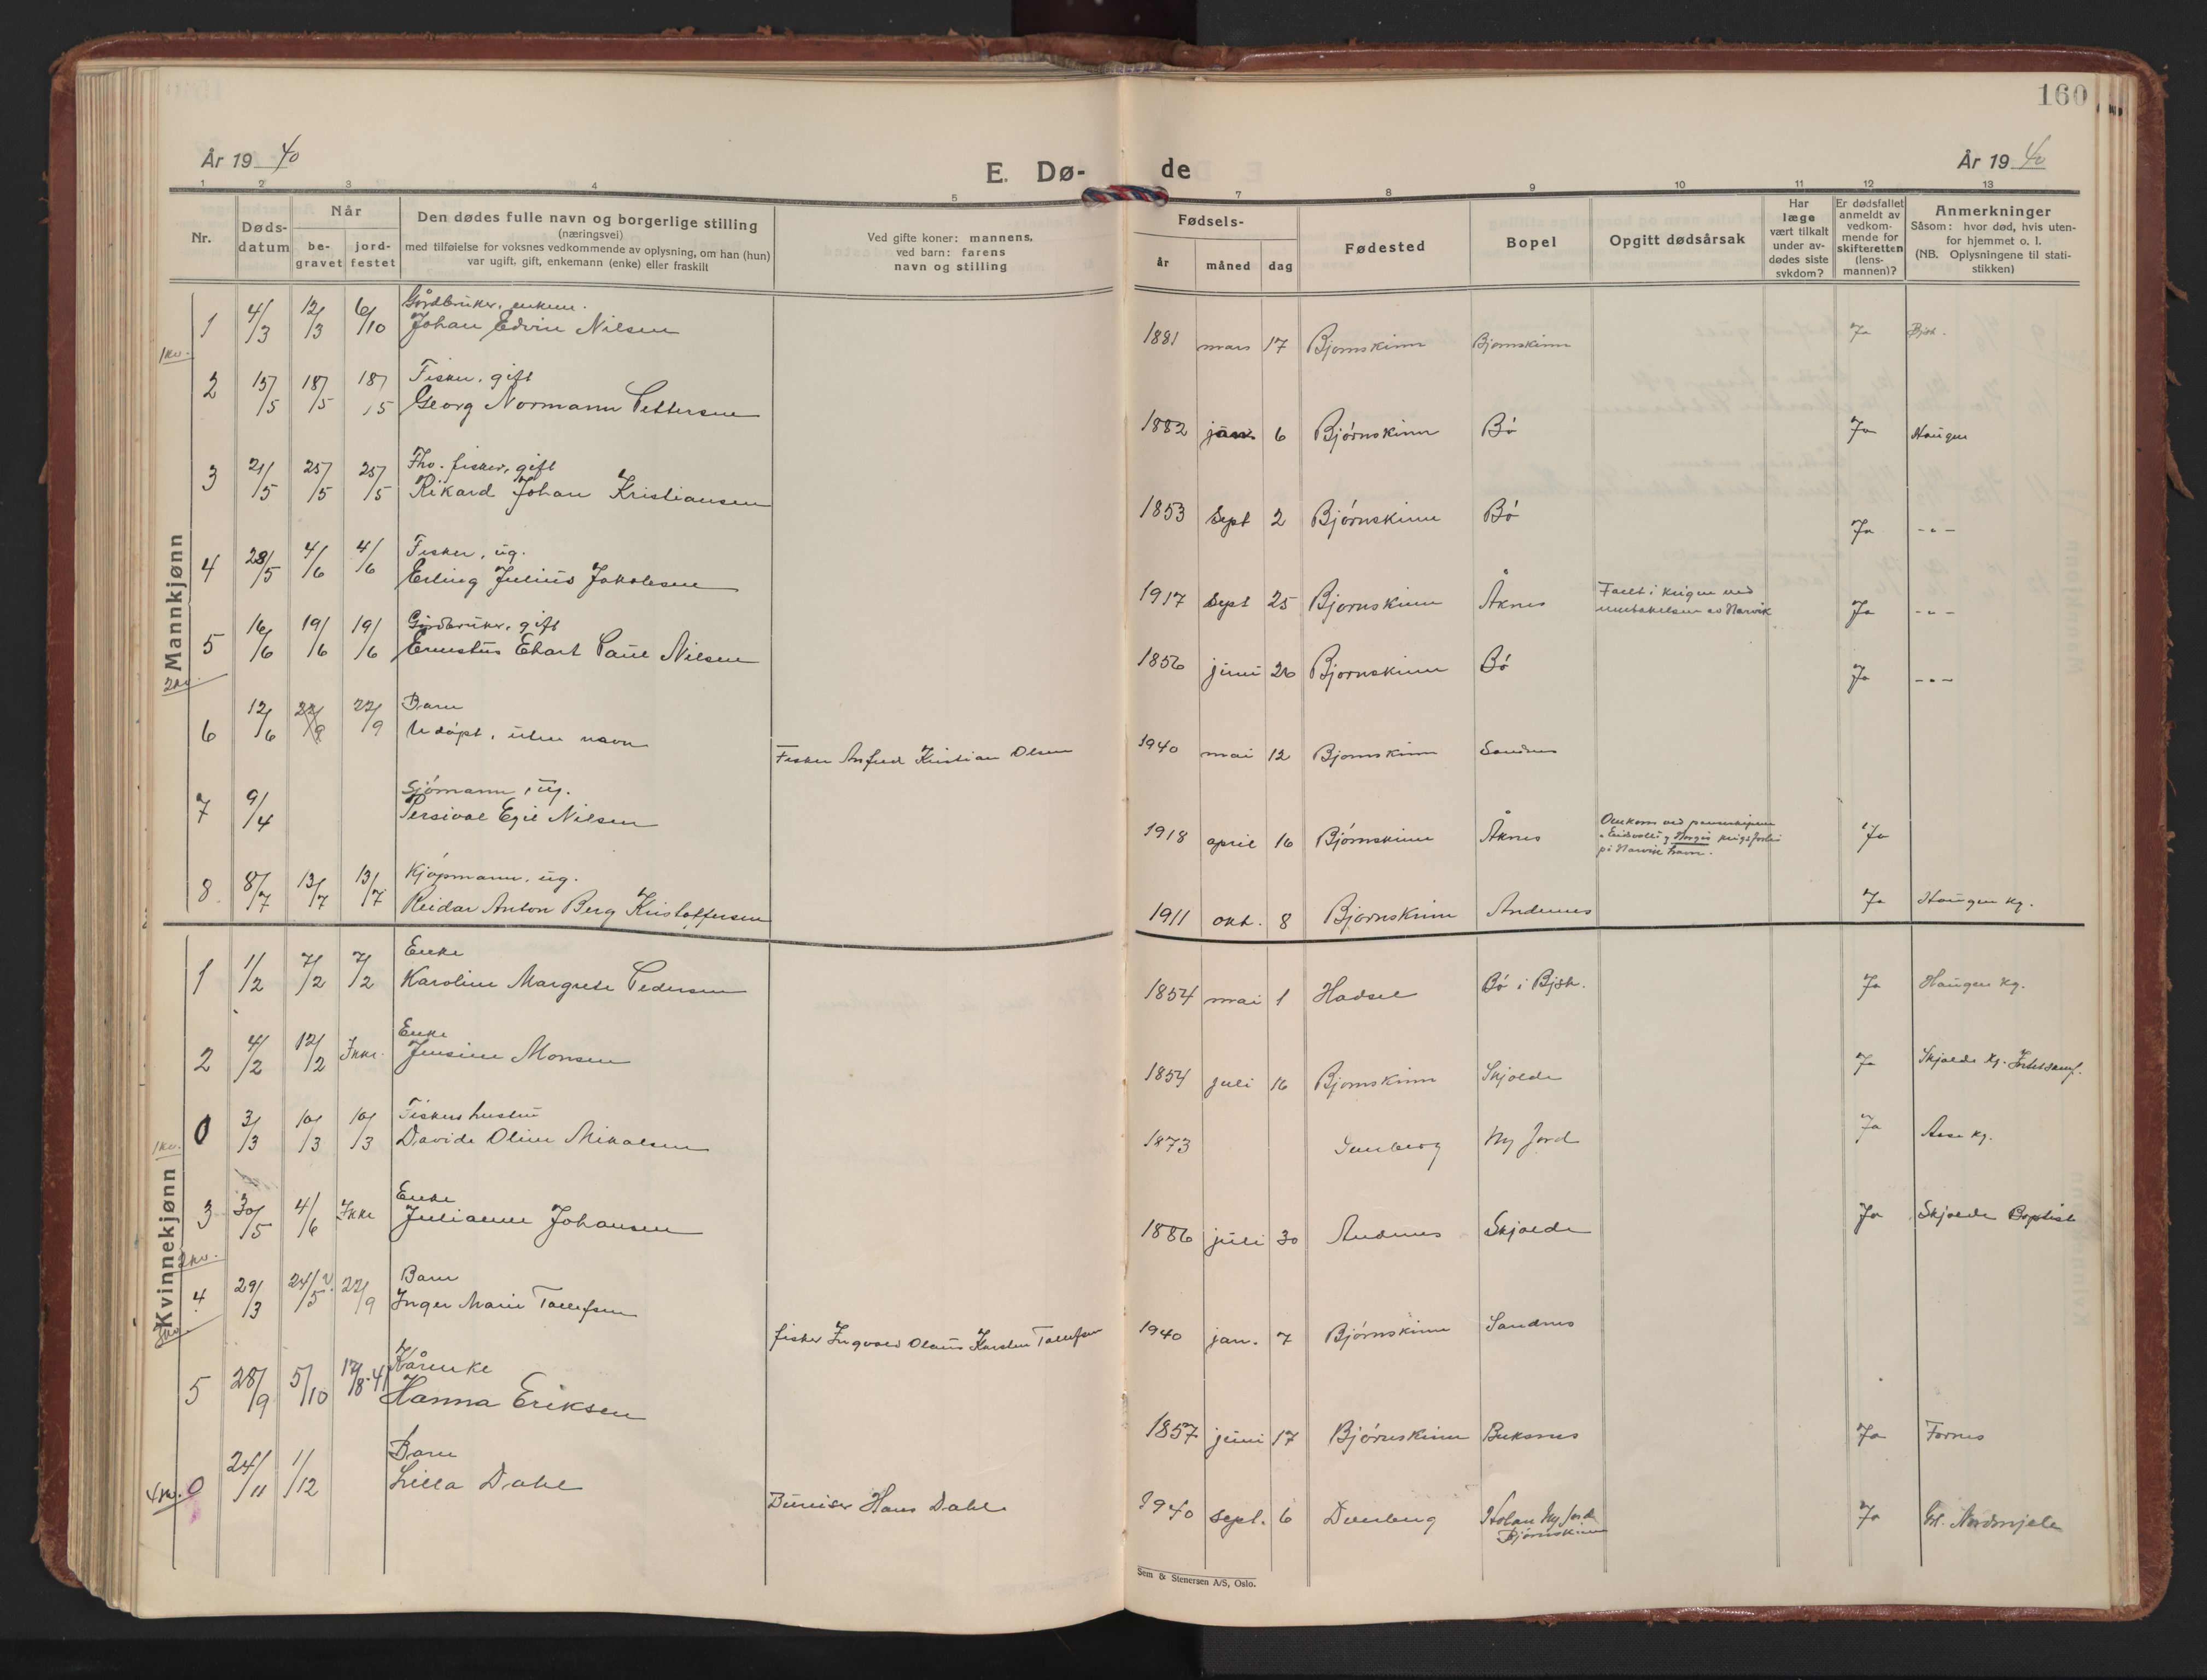 160
År 19 40
E. Dø-
de
År 19 40
1 2 3 4 5
7 8 9 10 11 12 13
Nr.
Døds-
datum
Når
be-
gravet
jord-
festet
Den dødes fulle navn og borgerlige stilling
(næringsvei)
med tilføielse for voksnes vedkommende av oplysning, om han (hun)
var ugift, gift, enkemann (enke) eller fraskilt
Ved gifte koner: mannens,
ved barn: farens
navn og stilling
Fødsels-
år
måned
dag
Fødested
Bopel
Opgitt dødsårsak
Har
læge
vært tilkalt
under av-
dødes siste
sykdom?
Er dødsfallet
anmeldt av
vedkom-
mende for
skifteretten
(lens-
mannen)?
Anmerkninger
Såsom: hvor død, hvis uten-
for hjemmet o. l.
(NB. Oplysningene til stati-
stikken)
Mannkjønn
Gårdbruker, enkem.
1 4/3 12/3 6/10 Johan Edvin Nilsen 1881 mars 17 Bjørnskinn Bjørnskinn Ja Bjsk.
1 kv.
Fisker, gift
2 15/5 18/5 18/5 Georg Normann Pettersen 1882 jan. 6 Bjørnskinn Bø Ja Haugen
Fhv. fisker, gift
3 21/5 25/5 25/5 Rikard Johan Kristiansen 1853 Sept 2 Bjørnskinn Bø Ja - " -
Fisker, ug.
4 28/5 4/6 4/6 Erling Julius Jakobsen 1917 Sept 25 Bjørnskinn Åknes Falt i krigen ved Ja - " -
av Narvik
Gårdbruker, gift
5 16/6 19/6 19/6 Ernstus Ehart Paul Nilsen 1856 juni 26 Bjørnskinn Bø Ja - " -
2 kv.
Barn
6 12/6 22/9 22/9 Udøpt, uten navn Fisker Anfred Kristian Olsen 1940 mai 12 Bjørnskinn Sandnes
Sjømann, ug.
7 9/4 Persival Egil Nilsen 1918 april 16 Bjørnskinn Åknes Omkom ved panserskipene Ja
"Eidsvoll" og Norges krigsforlis
på Narvik havn.
Kjøpmann, ug.
8 8/7 13/7 13/7 Reidar Anton Berg Kristoffersen 1911 okt. 8 Bjørnskinn Andenes Ja Haugen kg.
Kvinnekjønn
Enke
1 1/2 7/2 7/2 Karoline Margrete Pedersen 1854 mai 1 Hadsel Bø i Bjsk. Ja Haugen kg.
Enke
2 4/2 12/2 Ikke Jensine Monsen 1854 juli 16 Bjørnskinn Skjolde Ja Skjolde kg.
Fiskers hustru
0 3/3 10/3 10/3 Davida Oline Mikalsen 1873 Ny Jord Ja Åse kg.
1 kv.
Enke
3 30/5 4/6 Ikke Julianne Johansen 1886 juli 30 Andenes Skjolde Ja Skjolde Baptist
2 kv.
Barn
4 29/3 24/5 22/9 Inger Marie Tollefsen fisker Ingvald Olaus Karsten Tollefsen 1940 jan. 7 Bjørnskinn Sandnes
3 kv.
Kårenke
5 28/9 5/10 17/8-41 Hanna Eriksen 1857 juni 17 Bjørnskinn Buksnes Ja Fornes
Barn
4 kv. 0 24/11 1/12 Lilla Dahl Bureiser Hans Dahl 1940 sept. 6 Dverberg Holan Ny Jord Ja Gl. Nordmjele
Bjørnskinn
Sem & Stenersen A/S, Oslo.